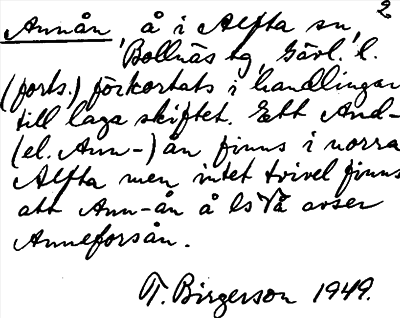 2
Annån, å i Alfta sn,
Bollnäs tg, Gävl. l.
(forts.) förkortats i handlingar
till laga skiftet. Ett And-
(el. Ann-) ån finns i norra
Alfta men intet tvivel finns
att Ann-ån å ls Vå avser
Anneforsån.
T. Birgerson 1949.